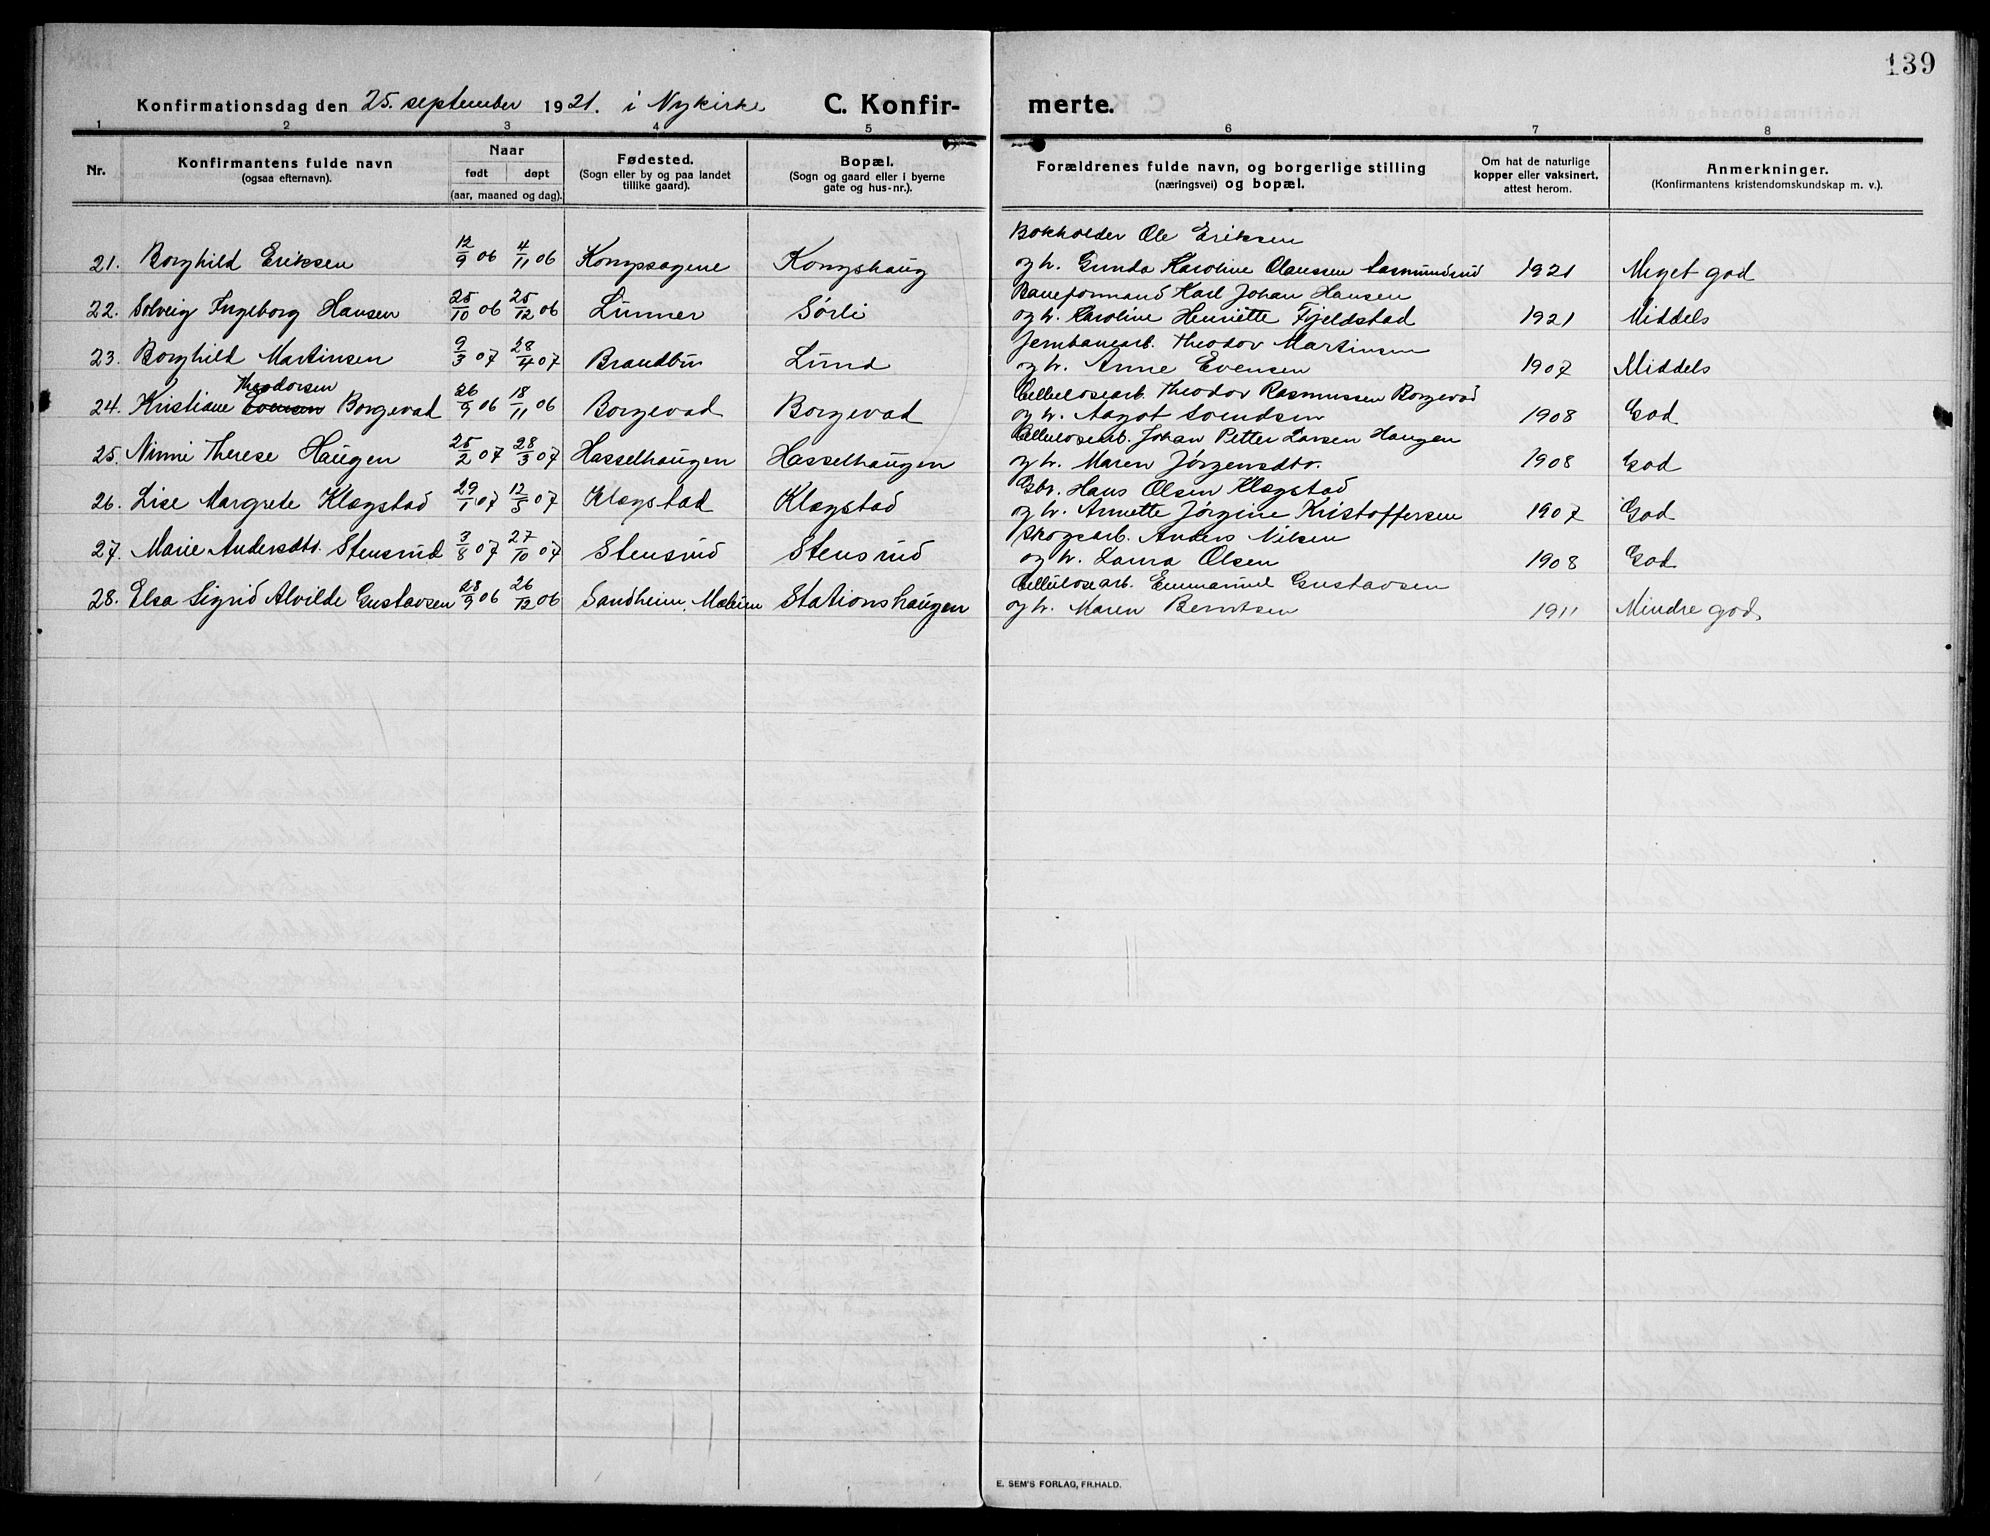 139
Konfirmationsdag den 25. september 1921. i Nykirke C. Konfirmerte.
1 2 3 4 5 6 7 8
Nr. Konfirmantens fulde navn (ogsaa efternavn). Naar født døpt (aar, maaned og dag). Fødested. (Sogn eller by og paa landet tillike gaard). Bopæl. (Sogn og gaard eller i byerne gate og hus-nr.). Forældrenes fulde navn, og borgerlige stilling (næringsvei) og bopæl. Om hat de naturlige kopper eller vaksinert, attest herom. Anmerkninger. (Konfirmantens kristendomskundskap m. v.).
Bokholder Ole Eriksen
21. Borghild Eriksen 12/9 06 4/11 06 Kongssagene Kongshaug og h. Gunda Karoline Olaussen Aasmundrud 1921 Meget god
Baneformand Karl Johan Hansen
22. Solveig Ingeborg Hansen 25/10 06 25/12 06 Lunner Sørli og h. Karoline Henriette Fjeldstad 1921 Middels
Jernbanearb. Theodor Martinsen
23. Borghild Martinsen 9/3 07 28/4 07 Brandbu Lund og h. Anne Evensen 1907 Middels
Theodorsen Cellulosearb. Theodor Rasmussen Borgevad
24. Kristiane Evensen Borgevad 26/9 06 18/11 06 Borgevad Borgevad og h. Aagot Svendsen 1908 God
Cellulosearb. Johan Petter Larsen Haugen
25. Nimi Therese Haugen 25/2 07 28/3 07 Hasselhaugen Hasselhaugen og h. Maren Jørgensdtr. 1908 God
Gbr. Hans Olsen Klægstad
26. Lise Margrete Klægstad 29/1 07 12/5 07 Klægstad Klægstad og h. Annette Jørgine Kristoffersen 1907 God
Skogsarb. Anders Nilsen
27. Marie Andersdtr. Stensrud 3/8 07 27/10 07 Stensrud Stensrud og h. Laura Olsen 1908 God
Cellulosearb. Emmanuel Gustavsen
28. Elsa Sigrid Alvilde Gustavsen 28/9 06 26/12 06 Sandheim, Stationshaugen og h. Maren Berntsen 1911 Mindre god.
E. SEM'S FORLAG, FR.HALD.